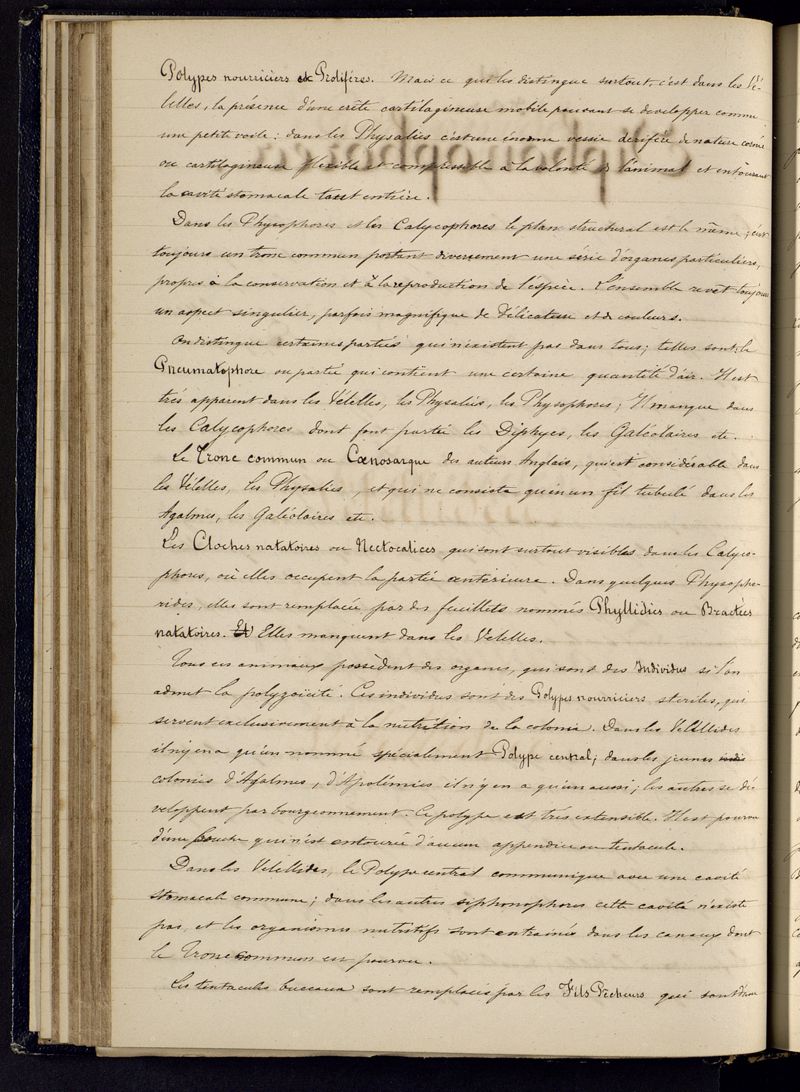 Polypes nourriciers et Prolifères. Mais ce qui les distingue surtout, c'est dans les Vé-
lelles, la présence d'une crête cartilagineuse mobile pouvant se developper comme
une petite voile : dans les Physalies c'est une énorme vessie aérifère de nature cornée
ou cartilagineuse flexible et compressible à la volonté de l'animal et entourant
la cavité stomacale tout entière.
Dans les Physophores et les Calycophores le plan structural est le même ; c'est
toujours un tronc commun portant diversement une série d'organes particuliers,
propres à la conservation et à la reproduction de l'espèce. L'ensemble revêt toujours
un aspect singulier, parfois magnifique de délicatesse et de couleurs.
On distingue certaines parties qui n'existent pas dans tous ; telles sont : le
Pneumatophore ou partie qui contient une certaine quantité d'air. Il est
très apparent dans les Vélelles, les Physalies, les Physophores ; Il manque dans
les Calycophores dont font partie les Diphyes, les Galéolaires etc.
Le Tronc commun ou Cœnosarque des auteurs Anglais, qui est considérable dans
les Vélelles, les Physalies, et qui ne consiste qu'en un fil tubulé dans les
Agalmes, les Galéolaires etc.
Les Cloches natatoires ou Nectocalices qui sont surtout visibles dans les Calyco-
phores, où elles occupent la partie antérieure. Dans quelques Physopho-
rides, elles sont remplacée par des feuillets nommés Phyllidies ou Bractées
natatoires. Elles manquent dans les Velelles.
Tous ces animaux possèdent des organes, qui sont des Individus si l'on
admet la polyzoïcité. Ces individus sont des Polypes nourriciers, steriles, qui
servent exclusivement à la nutrition de la colonie. Dans les Velellides
il n'y en a qu'un nommé spécialement Polype central ; dans les jeunes
colonies d'Agalmes, d'Apolémies il n'y en a qu'un aussi ; les autres se dé-
veloppent par bourgeonnement. Ce polype est très extensible. Il est pourvu
d'une bouche qui n'est entourée d'aucun appendice ou tentacule.
Dans les Velellides, le Polype central communique avec une cavité
stomacale commune ; dans les autres siphonophores cette cavité n'existe
pas, et les organismes nutritifs sont entrainés dans les canaux dont
le Tronc commun est pourvu.
Les tentacules buccaux sont remplacés par les Fils Pêcheurs qui sont d'une